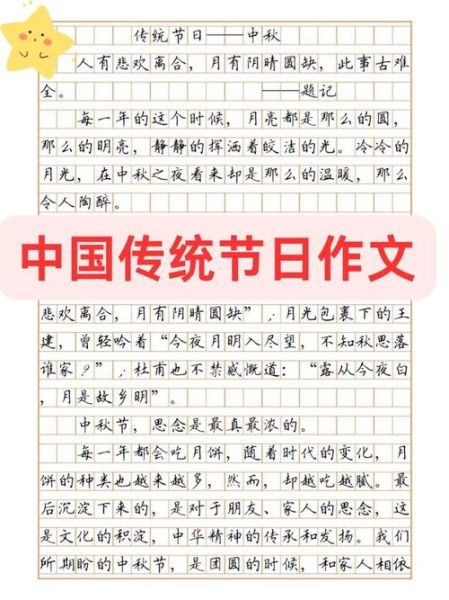 传统节日——中秋
人有悲欢离合，月有阴晴圆缺，此事古难
全。 ——题记
每一年的这个时候，月亮都是那么的圆，
那么的明亮，静静的挥洒着皎洁的光。冷冷的
月光，在中秋之夜看来却是那么的温暖，那么
令人陶醉。
中国传统节日作文
悲欢离合，月有阴晴圆缺”；月光包裹下的王
建，曾轻吟着“今夜月明人尽望，不知秋思落
谁家？”；杜甫也不禁感慨道：“露从今夜白
，月是故乡明”。
中秋节，思念是最真最浓的。
每一年都会吃月饼，随着时代的变化，月
饼的种类也越来越多，然而，却越吃越腻。最
后沉淀下来的，是对于朋友、家人的思念，这
是文化的积淀，中华精神的传承和发扬。我们
所期盼的中秋节，是团圆的时候，和家人相依